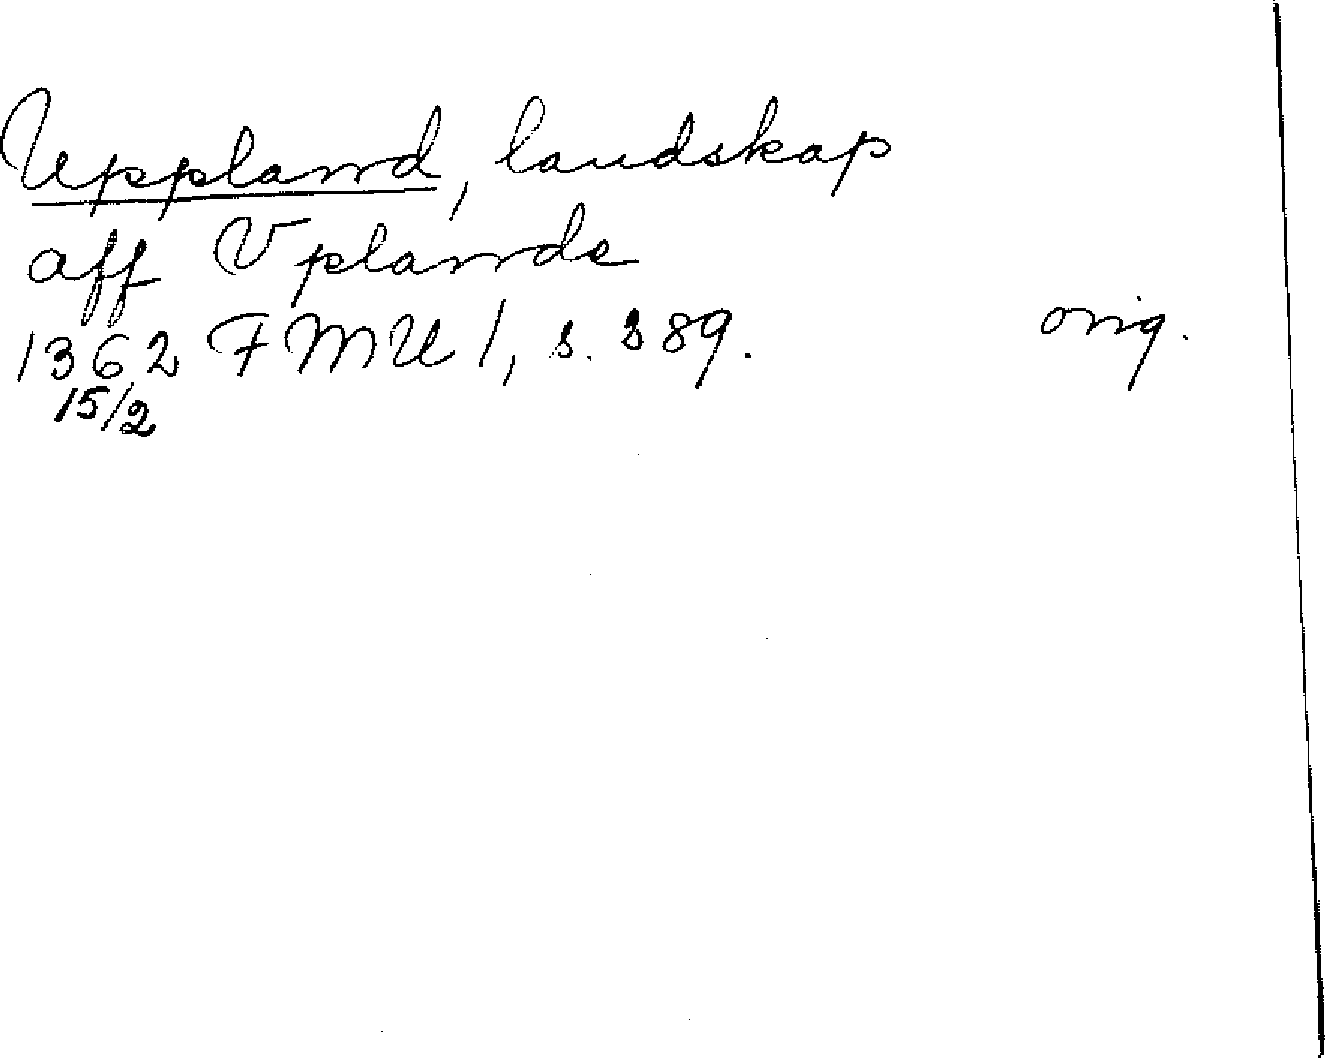 Uppland, landskap
aff Vplande
1362 FMU 1, s. 289. orig.
15/2